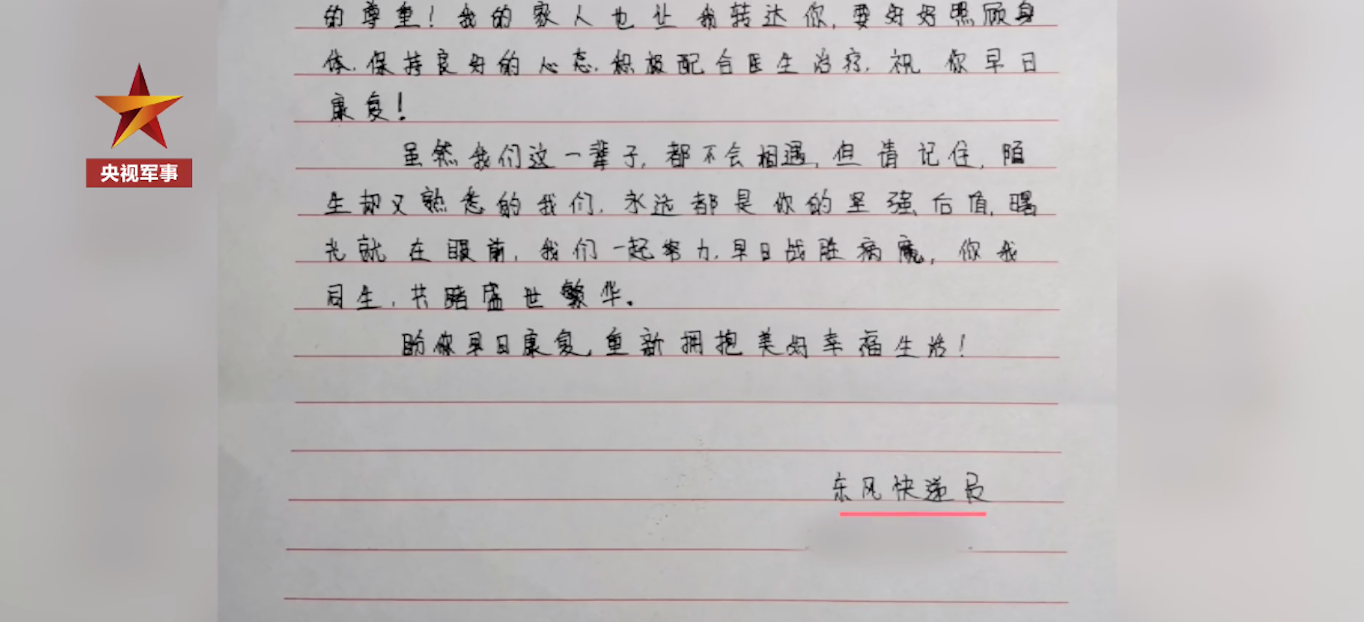 的尊重！我的家人也让我转达你，要好好照顾身
体，保持良好的心态，积极配合医生治疗，祝你早日
康复！
央视军事
虽然我们这一辈子，都不会相遇，但请记住，陌
生却又熟悉的我们，永远都是你的坚强后盾，曙
光就在眼前，我们一起努力，早日战胜病魔，你我
同生，共睹盛世繁华。
盼你早日康复，重新拥抱美好幸福生活！
东风快递员